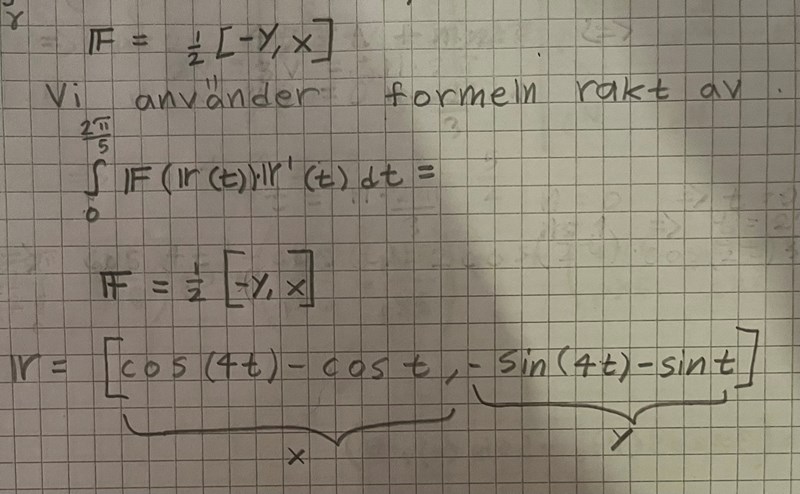 γ
𝔽 = 1/2 [-y, x]
Vi använder formeln rakt av.
∫₀^(2π/5) 𝔽(𝕣(t))·𝕣'(t) dt =
𝔽 = 1/2 [-y, x]
𝕣 = [cos(4t) - cos t, - sin(4t) - sin t]
x y